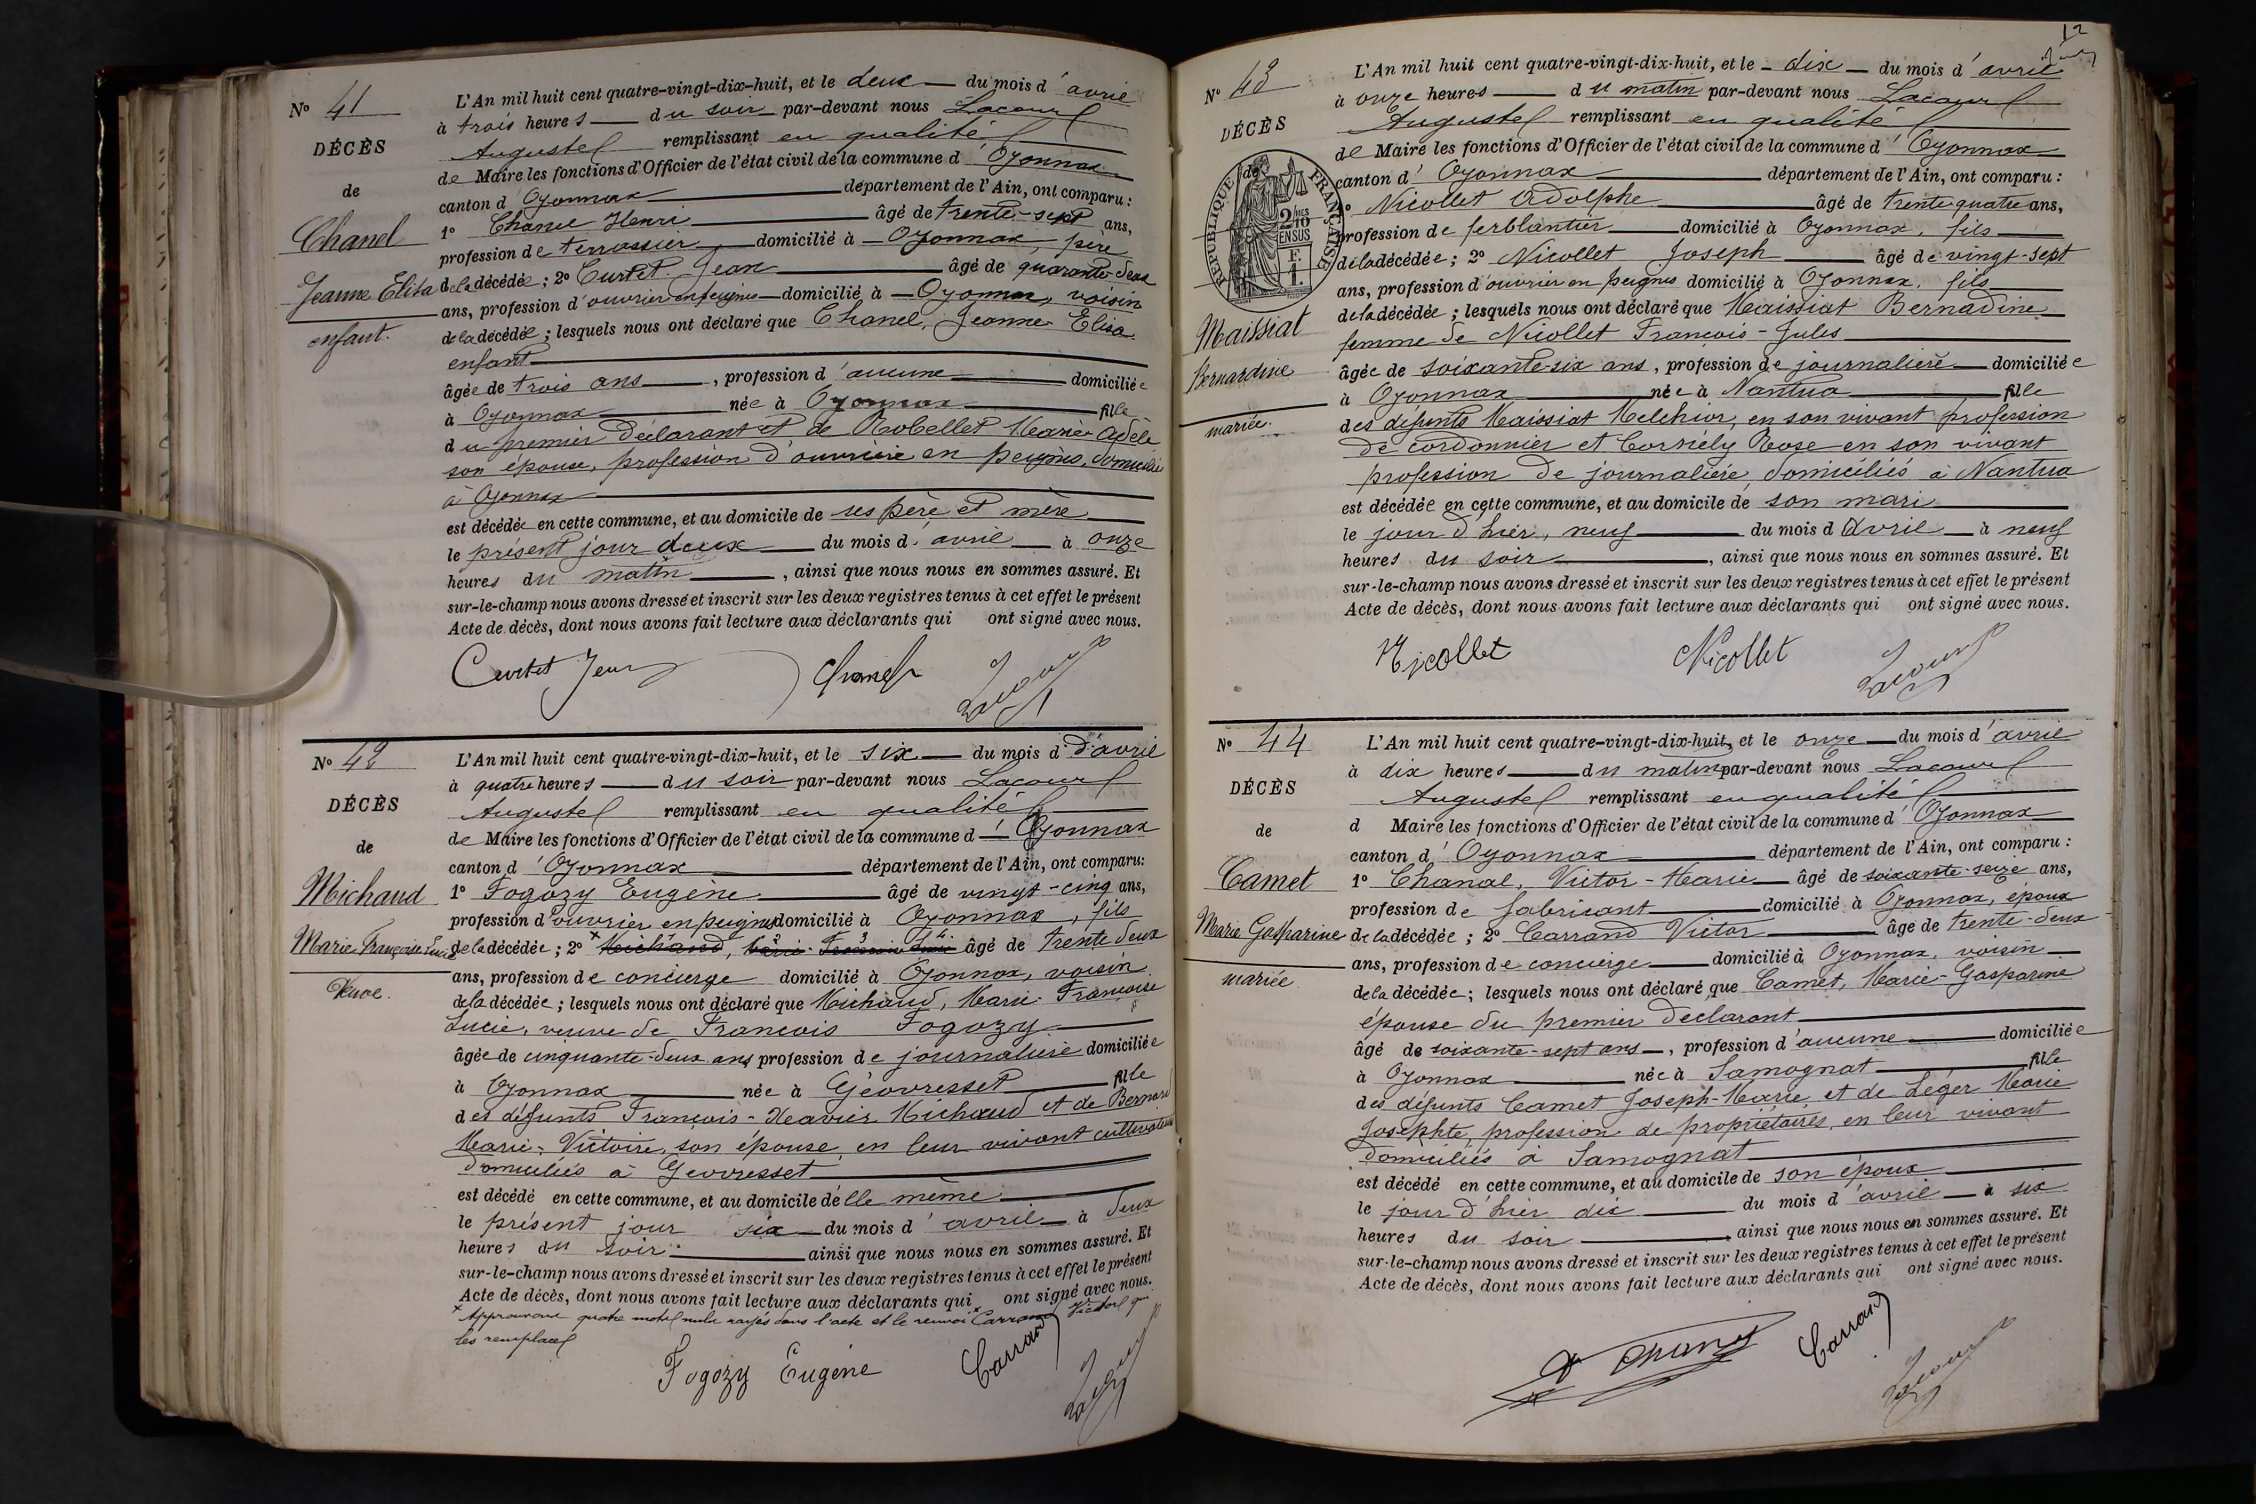 N° 41
DÉCÈS
de
Chanel
Jeanne Elisa
enfant.
L'An mil huit cent quatre-vingt-dix-huit, et le deux du mois d'avril
à trois heures du soir par-devant nous Lacour
Auguste remplissant en qualité
de Maire les fonctions d'Officier de l'état civil de la commune d'Oyonnax
canton d'Oyonnax département de l'Ain, ont comparu :
1° Chanel Henri âgé de trente-sept ans,
profession de terrassier domicilié à Oyonnax, père
de la décédée ; 2° Curtet Jean âgé de quarante-deux
ans, profession d'ouvrier en peignes domicilié à Oyonnax, voisin
de la décédée ; lesquels nous ont déclaré que Chanel, Jeanne Elisa
enfant
âgée de trois ans, profession d'aucune domiciliée
à Oyonnax née à Oyonnax fille
du premier déclarant et de Robellet Marie Adèle
son épouse, profession d'ouvrière en peignes, domiciliée
à Oyonnax
est décédée en cette commune, et au domicile de ses père et mère
le présent jour deux du mois d'avril à onze
heures du matin, ainsi que nous nous en sommes assuré. Et
sur-le-champ nous avons dressé et inscrit sur les deux registres tenus à cet effet le présent
Acte de décès, dont nous avons fait lecture aux déclarants qui ont signé avec nous.
Curtet Jean Chanel Lacour
N° 42
DÉCÈS
de
Michaud
Marie Françoise Lucie
Veuve.
L'An mil huit cent quatre-vingt-dix-huit, et le six du mois d d'avril
à quatre heures du soir par-devant nous Lacour
Auguste remplissant en qualité
de Maire les fonctions d'Officier de l'état civil de la commune d'Oyonnax
canton d'Oyonnax département de l'Ain, ont comparu :
1° Fogozy Eugène âgé de vingt-cinq ans,
profession d'ouvrier en peignes domicilié à Oyonnax, fils
de la décédée ; 2° × Michaud, Marie Françoise Lucie âgé de trente deux
ans, profession de concierge domicilié à Oyonnax, voisin
de la décédée ; lesquels nous ont déclaré que Michaud, Marie Françoise
Lucie, veuve de François Fogozy
âgée de cinquante-deux ans profession de journalière domiciliée
à Oyonnax née à Géovresset fille
des défunts François-Xavier Michaud et de Bernard
Marie-Victoire, son épouse, en leur vivant cultivateurs
domiciliés à Géovresset
est décédé en cette commune, et au domicile d'elle même
le présent jour six du mois d'avril à deux
heures du soir ainsi que nous nous en sommes assuré. Et
sur-le-champ nous avons dressé et inscrit sur les deux registres tenus à cet effet le présent
Acte de décès, dont nous avons fait lecture aux déclarants qui ont signé avec nous.
× Approuvons quatre mots nuls rayés dans l'acte et le renvoi Carrand Victor qui
les remplace
Fogozy Eugène Carrand Lacour
12
N° 43
DÉCÈS
de
RÉPUBLIQUE FRANÇAISE
2/10 EN SUS
F.
1.
Maissiat
Bernardine
mariée.
L'An mil huit cent quatre-vingt-dix-huit, et le dix du mois d'avril
à onze heures du matin par-devant nous Lacour
Auguste remplissant en qualité
de Maire les fonctions d'Officier de l'état civil de la commune d'Oyonnax
canton d'Oyonnax département de l'Ain, ont comparu :
1° Nicollet Adolphe âgé de trente quatre ans,
profession de ferblantier domicilié à Oyonnax, fils
de la décédée ; 2° Nicollet Joseph âgé de vingt-sept
ans, profession d'ouvrier en peignes domicilié à Oyonnax, fils
de la décédée ; lesquels nous ont déclaré que Maissiat Bernadine
femme de Nicollet François-Jules
âgée de soixante-six ans, profession de journalière domiciliée
à Oyonnax née à Nantua fille
des défunts Maissiat Melchior, en son vivant profession
de cordonnier et Cornely Rose en son vivant
profession de journalière, domiciliés à Nantua
est décédée en cette commune, et au domicile de son mari
le jour d'hier, neuf du mois d'Avril à neuf
heures du soir, ainsi que nous nous en sommes assuré. Et
sur-le-champ nous avons dressé et inscrit sur les deux registres tenus à cet effet le présent
Acte de décès, dont nous avons fait lecture aux déclarants qui ont signé avec nous.
Nicollet Nicollet Lacour
N° 44
DÉCÈS
de
Camet
Marie Gasparine
mariée
L'An mil huit cent quatre-vingt-dix-huit, et le onze du mois d'avril
à dix heures du matin par-devant nous Lacour
Auguste remplissant en qualité
d Maire les fonctions d'Officier de l'état civil de la commune d'Oyonnax
canton d'Oyonnax département de l'Ain, ont comparu :
1° Chanal, Victor-Marie âgé de soixante-seize ans,
profession de fabricant domicilié à Oyonnax, époux
de la décédée ; 2° Carrand Victor âgé de trente-deux
ans, profession de concierge domicilié à Oyonnax, voisin
de la décédée ; lesquels nous ont déclaré que Camet, Marie-Gasparine
épouse du premier déclarant
âgé de soixante-sept ans, profession d'aucune domiciliée
à Oyonnax née à Samognat fille
des défunts Camet Joseph-Marie et de Léger Marie
Josephte, profession de propriétaires, en leur vivant
domiciliés à Samognat
est décédé en cette commune, et au domicile de son époux
le jour d'hier dix du mois d'avril à six
heures du soir ainsi que nous nous en sommes assuré. Et
sur-le-champ nous avons dressé et inscrit sur les deux registres tenus à cet effet le présent
Acte de décès, dont nous avons fait lecture aux déclarants qui ont signé avec nous.
Carrand Lacour